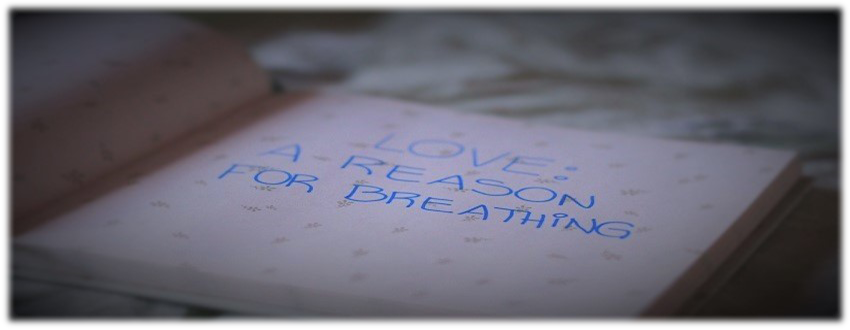 LOVE:
A REASON
FOR BREATHING